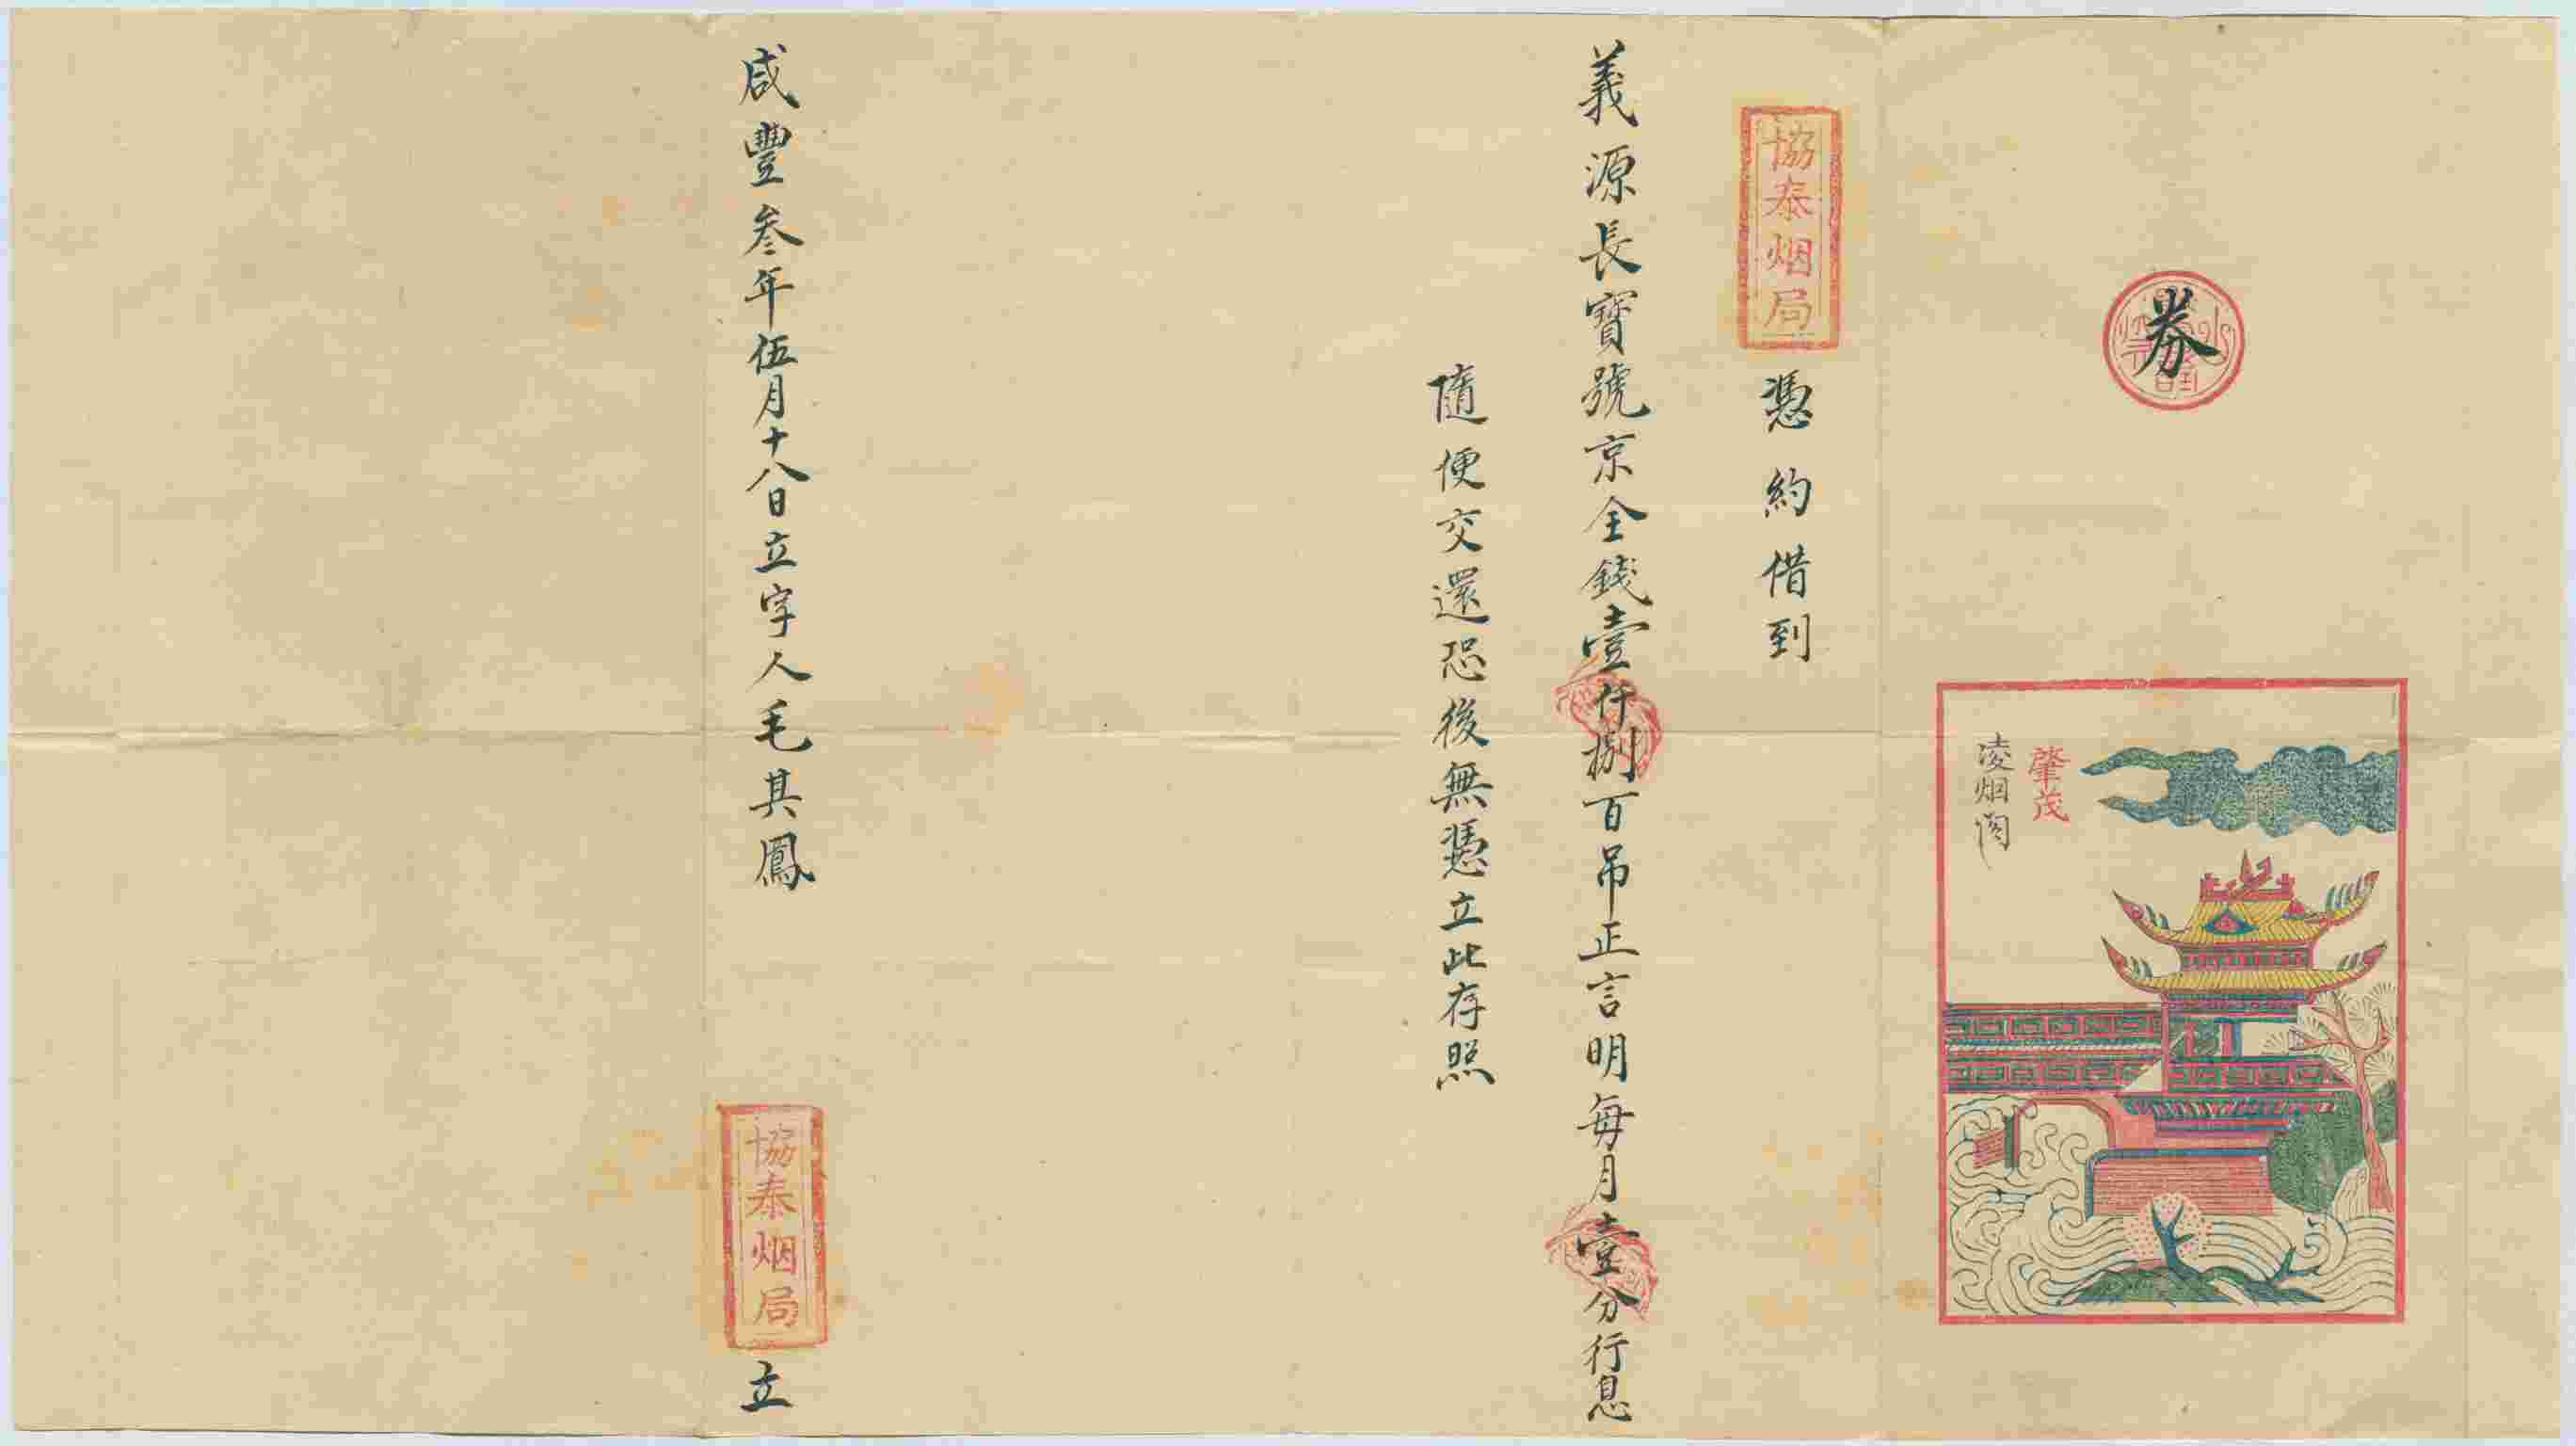 券
肇茂
凌烟阁
協泰烟局
憑約借到
義源長寳號京全錢壹仟捌百吊正言明每月壹分行息
隨便交還恐後無憑立此存照
咸豐叁年伍月十八日立字人毛其鳳
協泰烟局
立